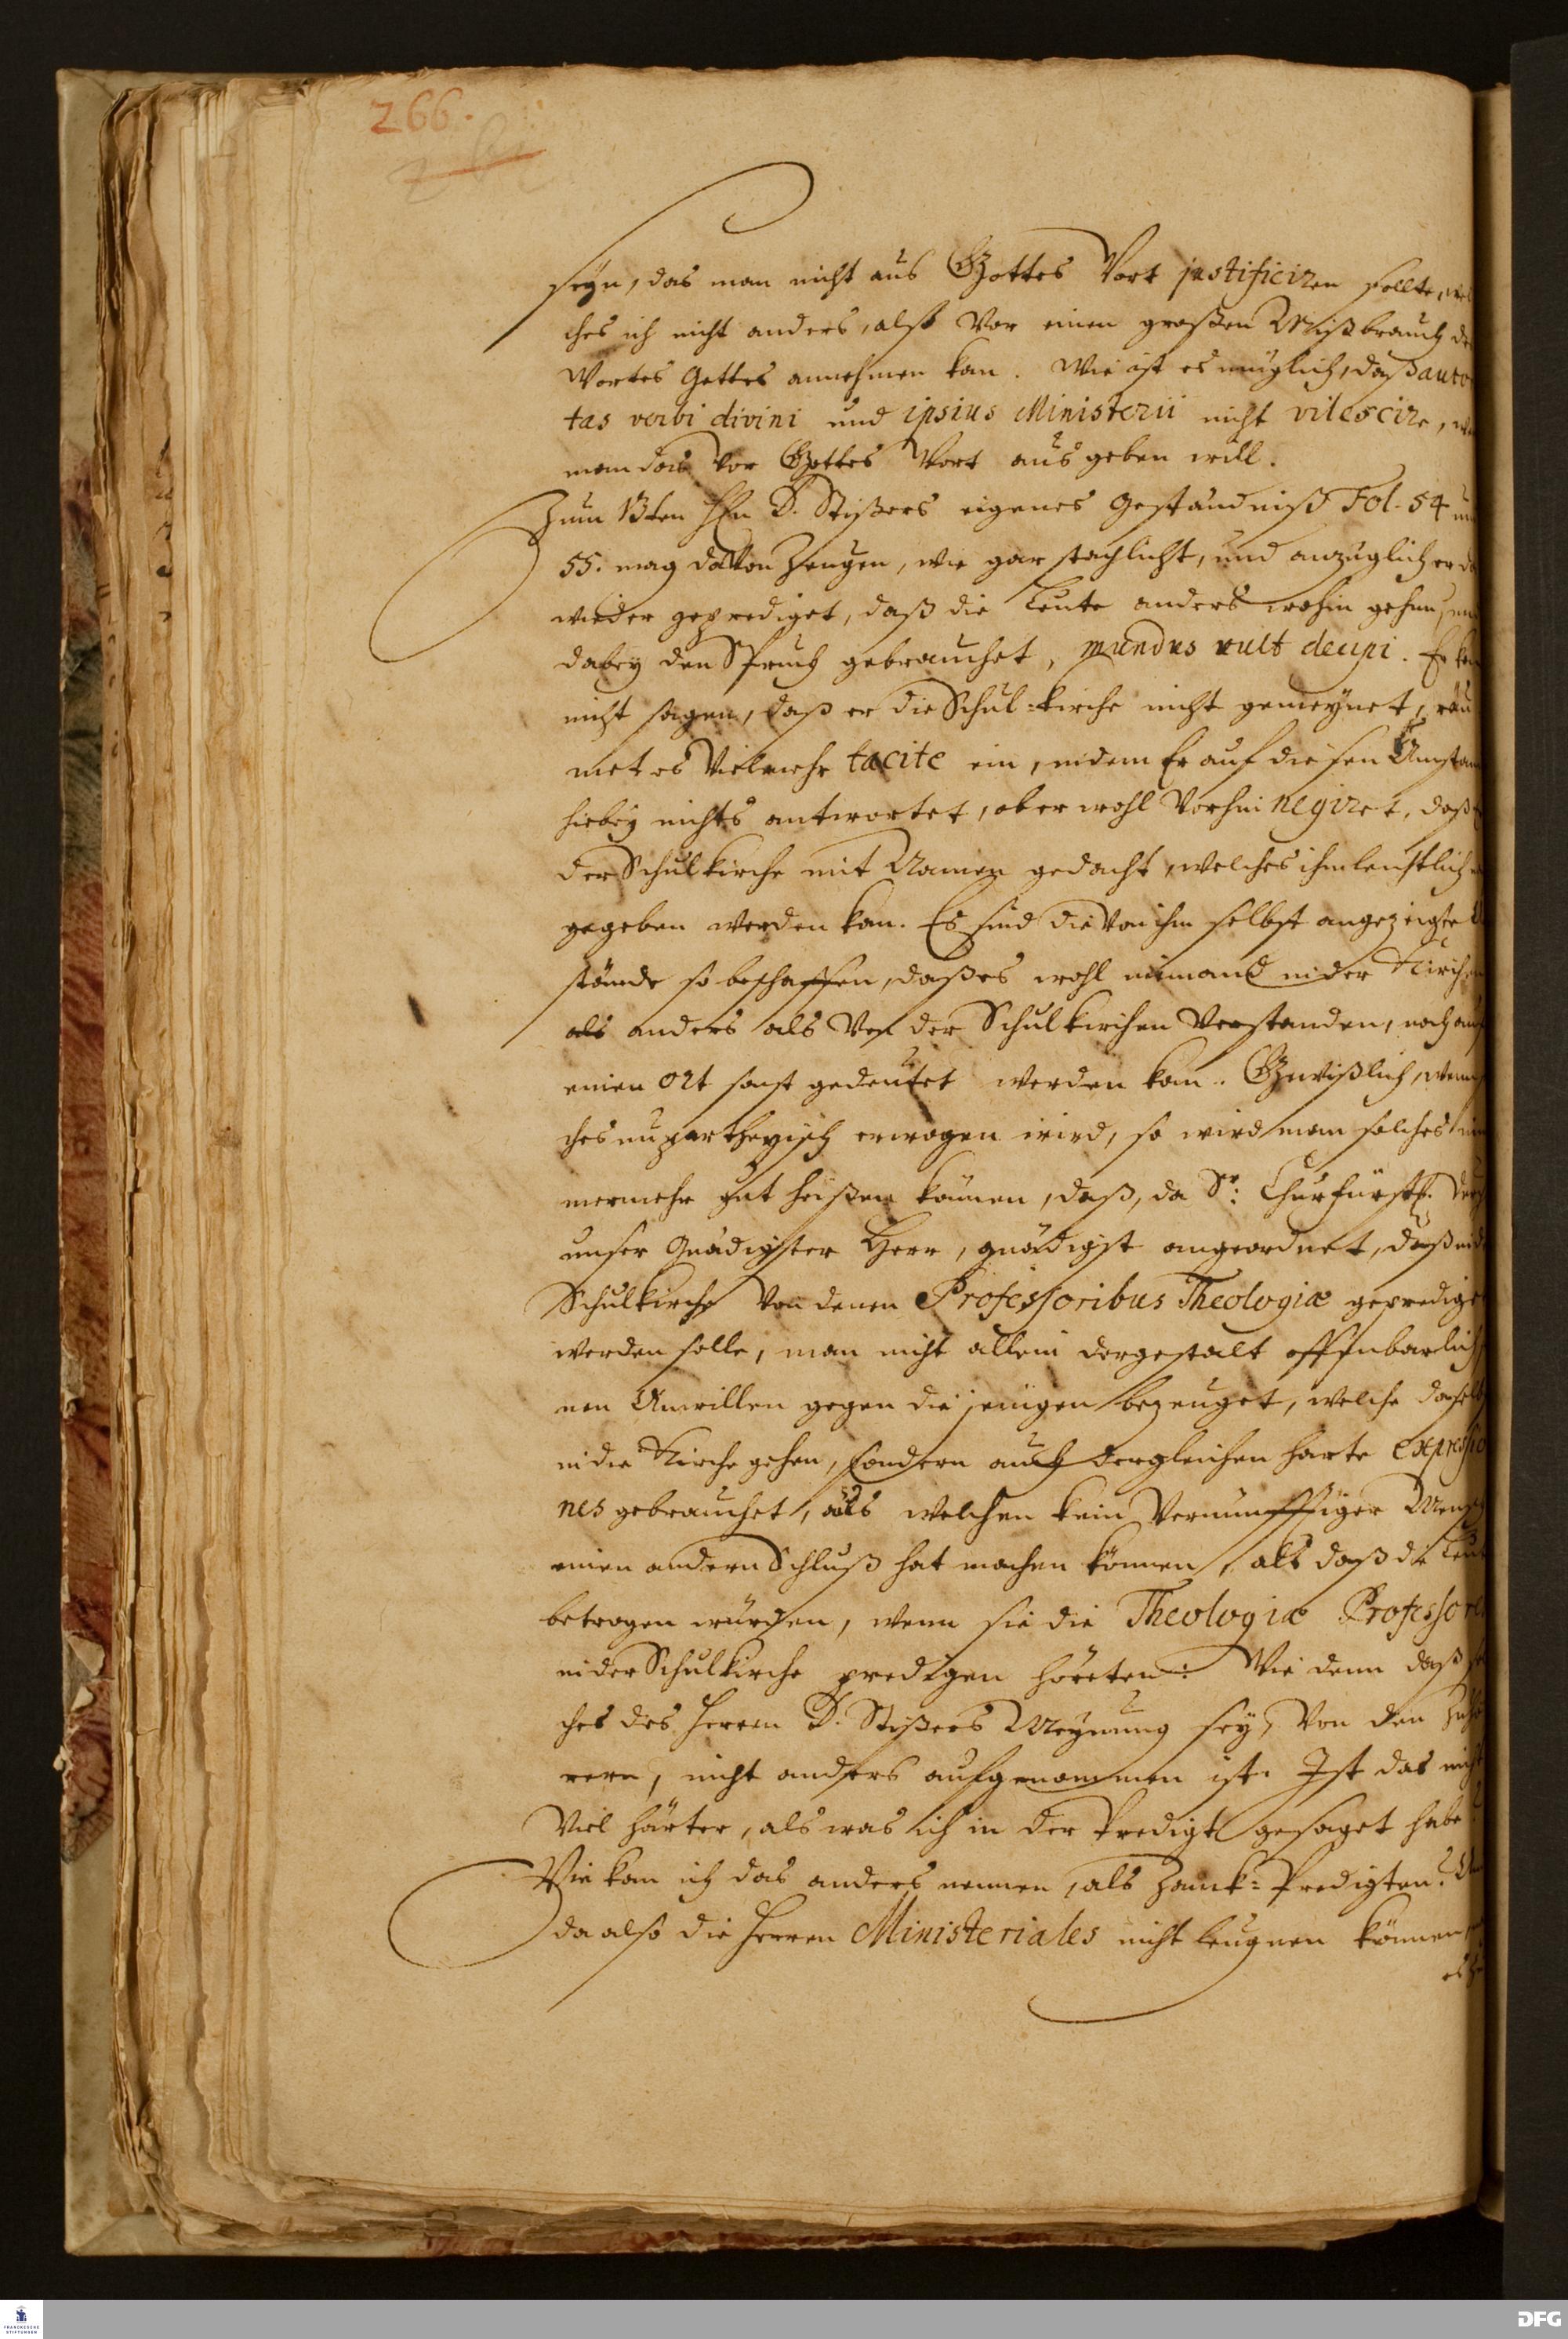 266.
seyn, das man nicht aus Gottes Wort justificiren sollte, wel
ches ich nicht anders, alß vor einen großen Mißbrauch de
Wortes Gottes annehmen kan. Wie ist es müglich, daß auto
tas verbi divini und ipsius Ministerii nicht vilescire, we
man das vor Gottes Wort ausgeben will.
Zum 13ten Hn D. Stißers eigenes Geständniß Fol. 54 un
55. mag davon zeugen, wie gar stachlicht, und anzüglich er da
wieder geprediget, daß die Leute anders wohin gehen, un
dabey den Spruch gebrauchet, mundus vult decipi. Er kan
nicht sagen, daß er die Schul=kirche nicht gemeynet, räu
met es vielmehr tacite ein, indem Er auf diesen Umstan
hiebey nichts antwortet, aber wohl vorhin negiret, daß
der Schulkirche mit Namen gedacht, welches ihm leichtlich
gegeben werden kan. Es sind die von ihm selbst angezeigte
stände so beschaffen, daß es wohl niemand in der Kirchen
als anders als von der Schulkirchen verstanden, noch auf
einen Ort sonst gedeutet werden kan. Gewißlich, wenn
ches unpartheyisch erwogen wird, so wird man solches nim
mermehr gut heißen können, daß, da Sr: Churfürstl. Durch
unser Gnädigster Herr, gnädigst angeordnet, daß in d
Schulkirche von denen Professoribus Theologiæ gepredige
werden solle, man nicht allein dergestalt offenbarlich
nen Unwillen gegen diejenigen bezeuget, welche daselb
in die Kirche gehen, sondern auch dergleichen harte expressio
nes gebrauchet, aus welchen kein vernünfftiger Mensch
einen andern Schluß hat machen können, als daß die Leut
betrogen würden, wenn sie die Theologiæ Professore
in der Schulkirche predigen höreten: Wie denn daß so
ches des Herrn D. Stißers Meynung sey, von den Zuhö
rern, nicht anders aufgenommen ist. Ist das nicht
viel härter, als was ich in der Predigt gesaget habe?
Wie kan ich das anders nennen, als Zanck=Predigten?
da also die Herren Ministeriales nicht leugnen können,
es
FRANCKESCHE
STIFTUNGEN
DFG